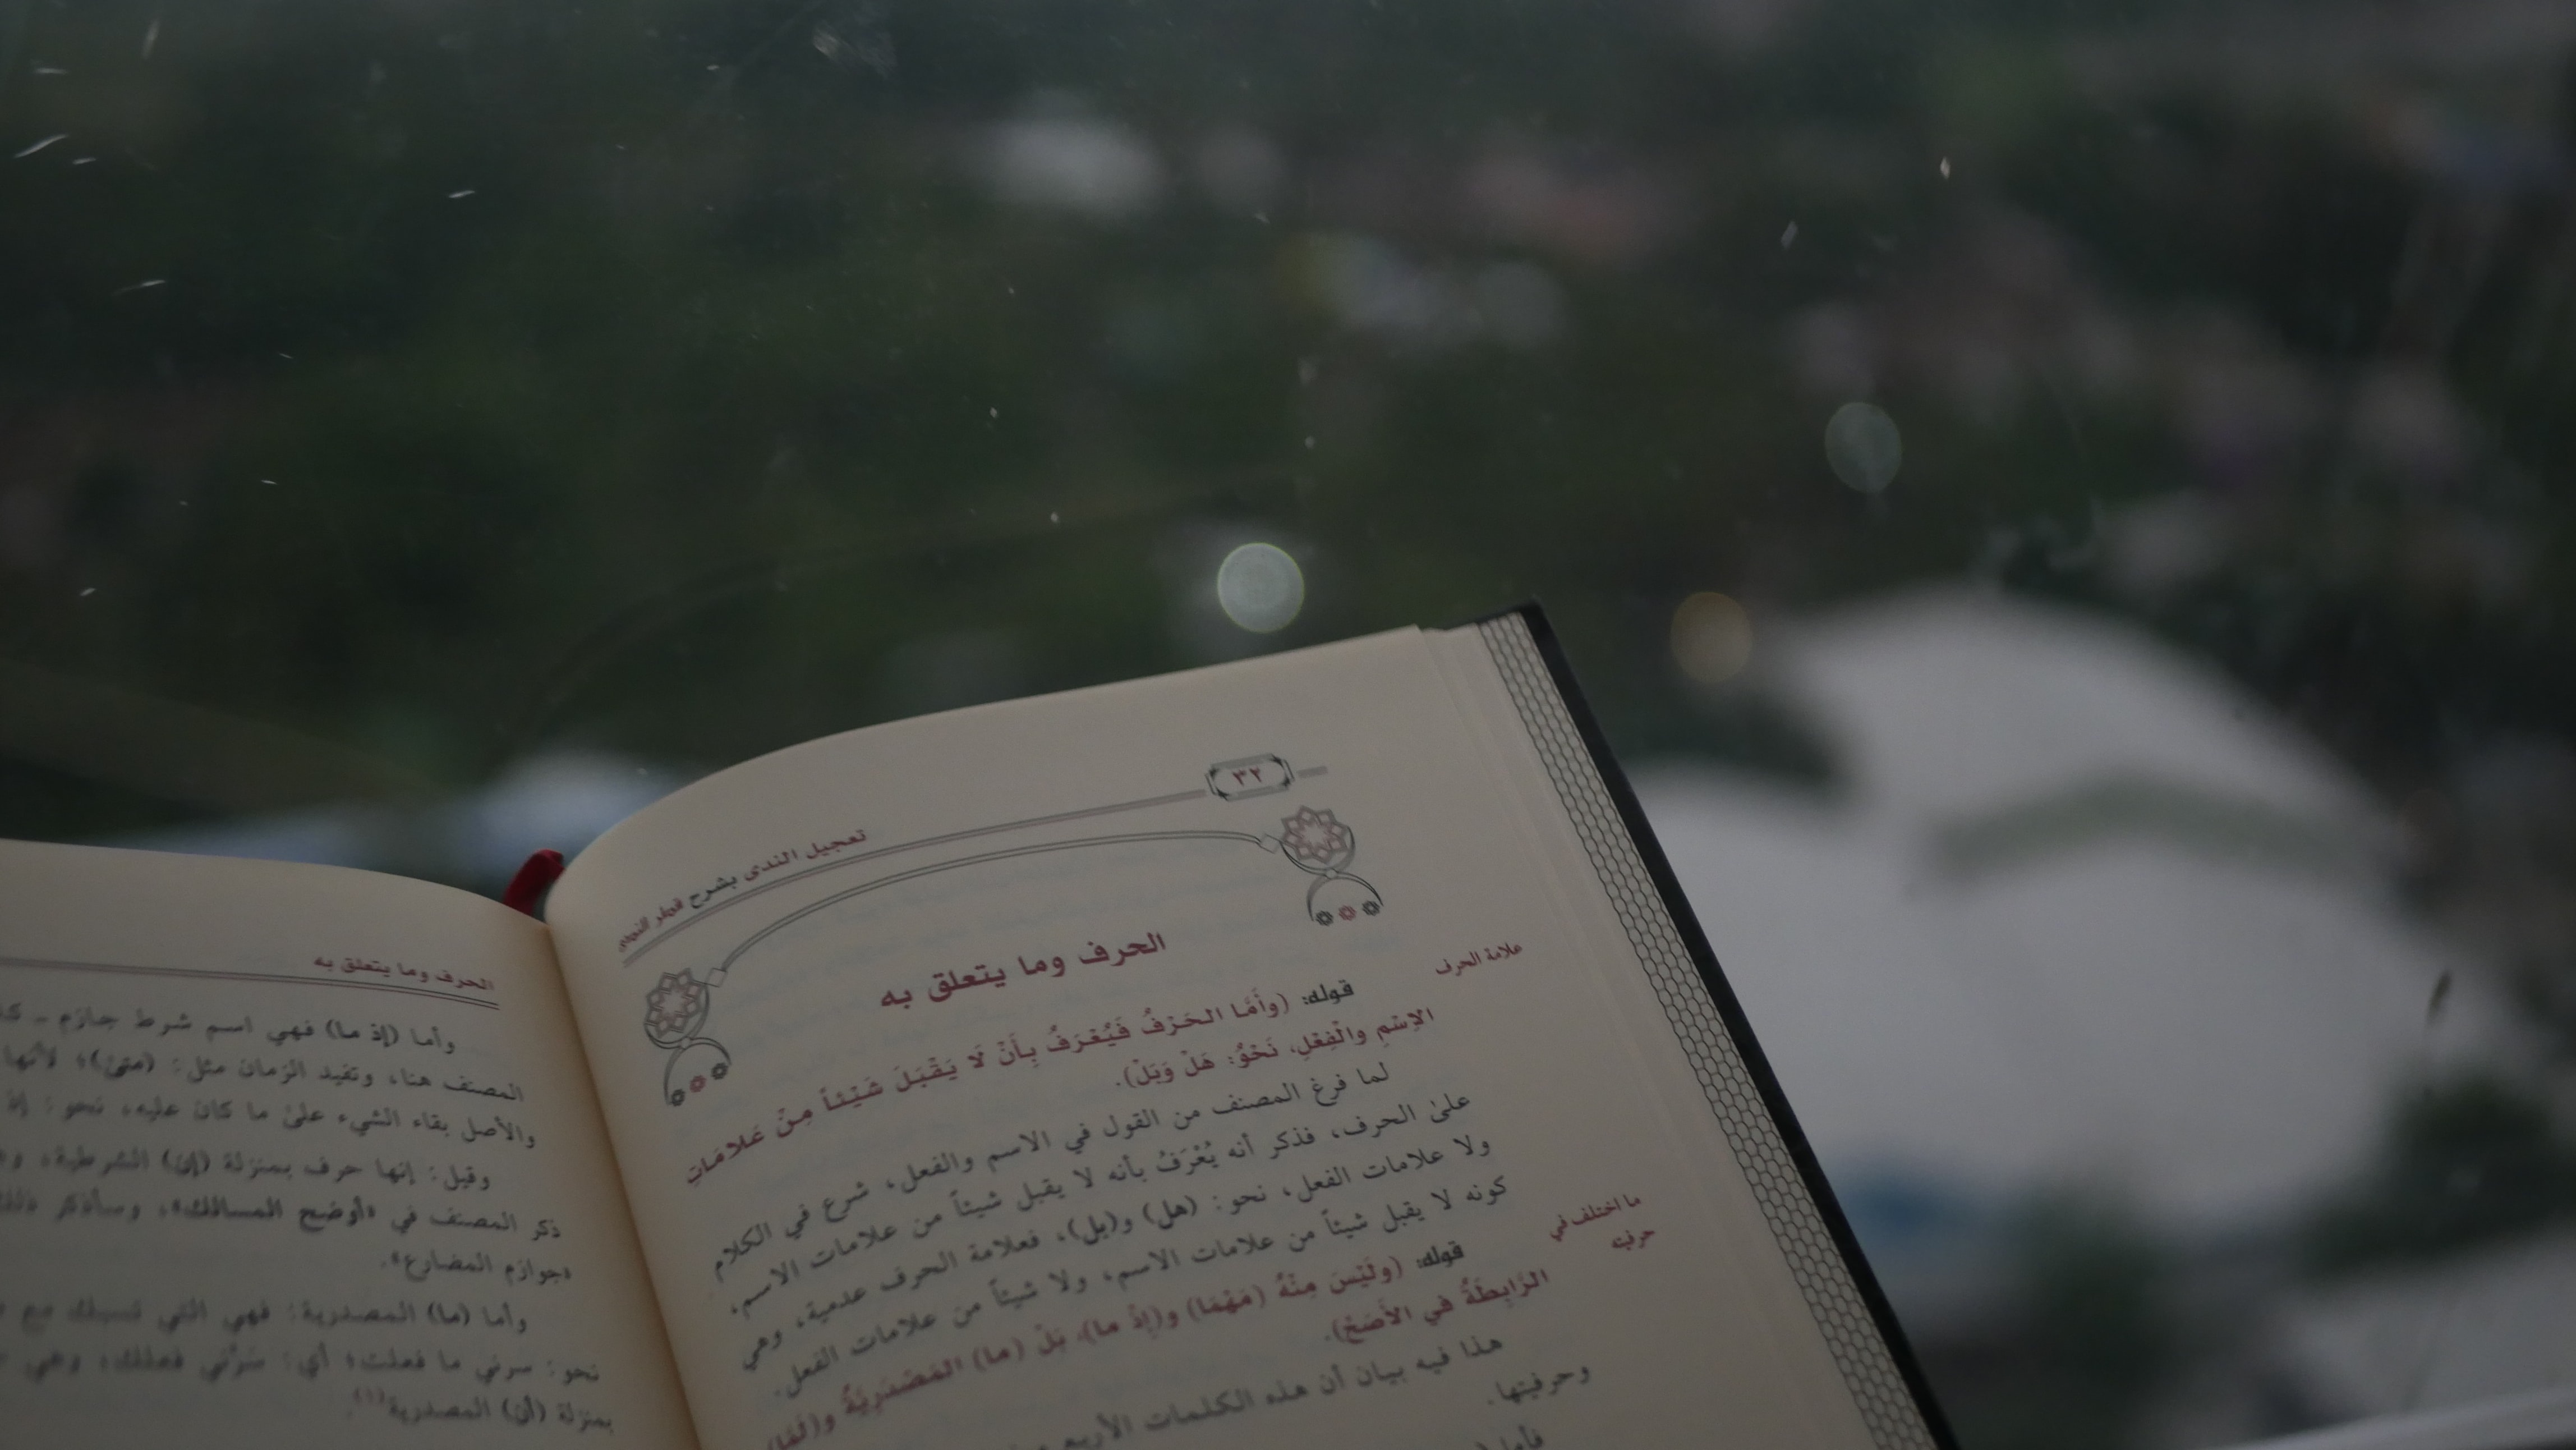 ٣٢
تعجيل الندى بشرح قطر الندى
الحرف وما يتعلق به
علامة الحرف
قوله: (وأَمَّا الحَرْفُ فَيُعْرَفُ بِأَنْ لَا يَقْبَلَ شَيْئاً مِنْ عَلامَاتِ
الاِسْمِ والْفِعْلِ، نَحْوُ: هَلْ وَبَلْ).
لما فرغ المصنف من القول في الاسم والفعل، شرع في الكلام
علىٰ الحرف، فذكر أنه يُعْرَفُ بأنه لا يقبل شيئاً من علامات الاسم،
ولا علامات الفعل، نحو: (هل) و(بل)، فعلامة الحرف عدمية، وهي
كونه لا يقبل شيئاً من علامات الاسم، ولا شيئاً من علامات الفعل.
ما اختلف في
حرفيته
قوله: (ولَيْسَ مِنْهُ (مَهْمَا) و(إِذْ ما)، بَلْ (ما) المَصْدَرِيَّةُ و(لَمَّا)
الرَّابِطَةُ في الأَصَحِّ).
هذا فيه بيان أن هذه الكلمات الأربع
وحرفيتها.
فأما
الحرف وما يتعلق به
وأما (إذ ما) فهي اسم شرط جازم ـ
المصنف هنا، وتفيد الزمان مثل: (متىٰ)؛ لأنها
والأصل بقاء الشيء علىٰ ما كان عليه، نحو: إذ
وقيل: إنها حرف بمنزلة (إن) الشرطية،
ذكر المصنف في «أوضح المسالك»، وسأذكر ذلك
«جوازم المضارع».
وأما (ما) المصدرية: فهي التي تسبك مع
نحو: سرني ما فعلت؛ أي: سَرَّني فعلك، وهي
بمنزلة (أن) المصدرية(١).